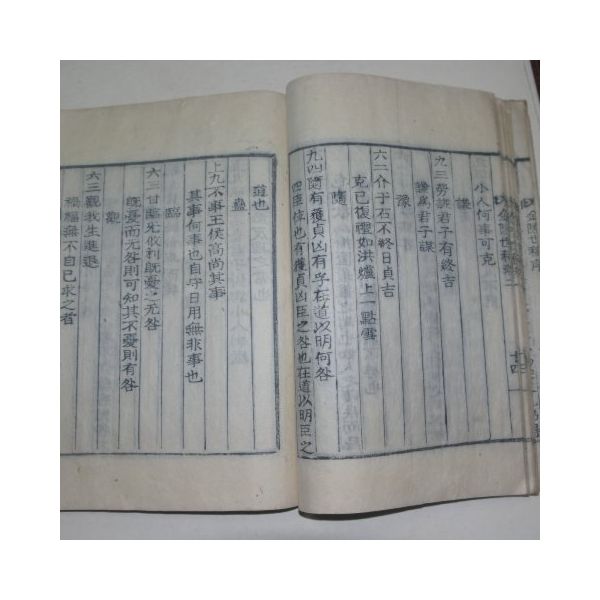 小人何事可克
謙
九三勞謙君子有終吉
謙爲君子謀
豫
六二介于石不終日貞吉
克己復禮如洪爐上一點雪
隨
九四隨有獲貞凶有孚在道以明何咎
四臣位也有獲貞凶臣之咎也在道以明臣之
道也
蠱
上九不事王侯高尚其事
其事何事也自守日用無非事也
臨
六三甘臨无攸利旣憂之无咎
旣憂而无咎則可知其不憂則有咎
觀
六三觀我生進退
禍福無不自己求之者